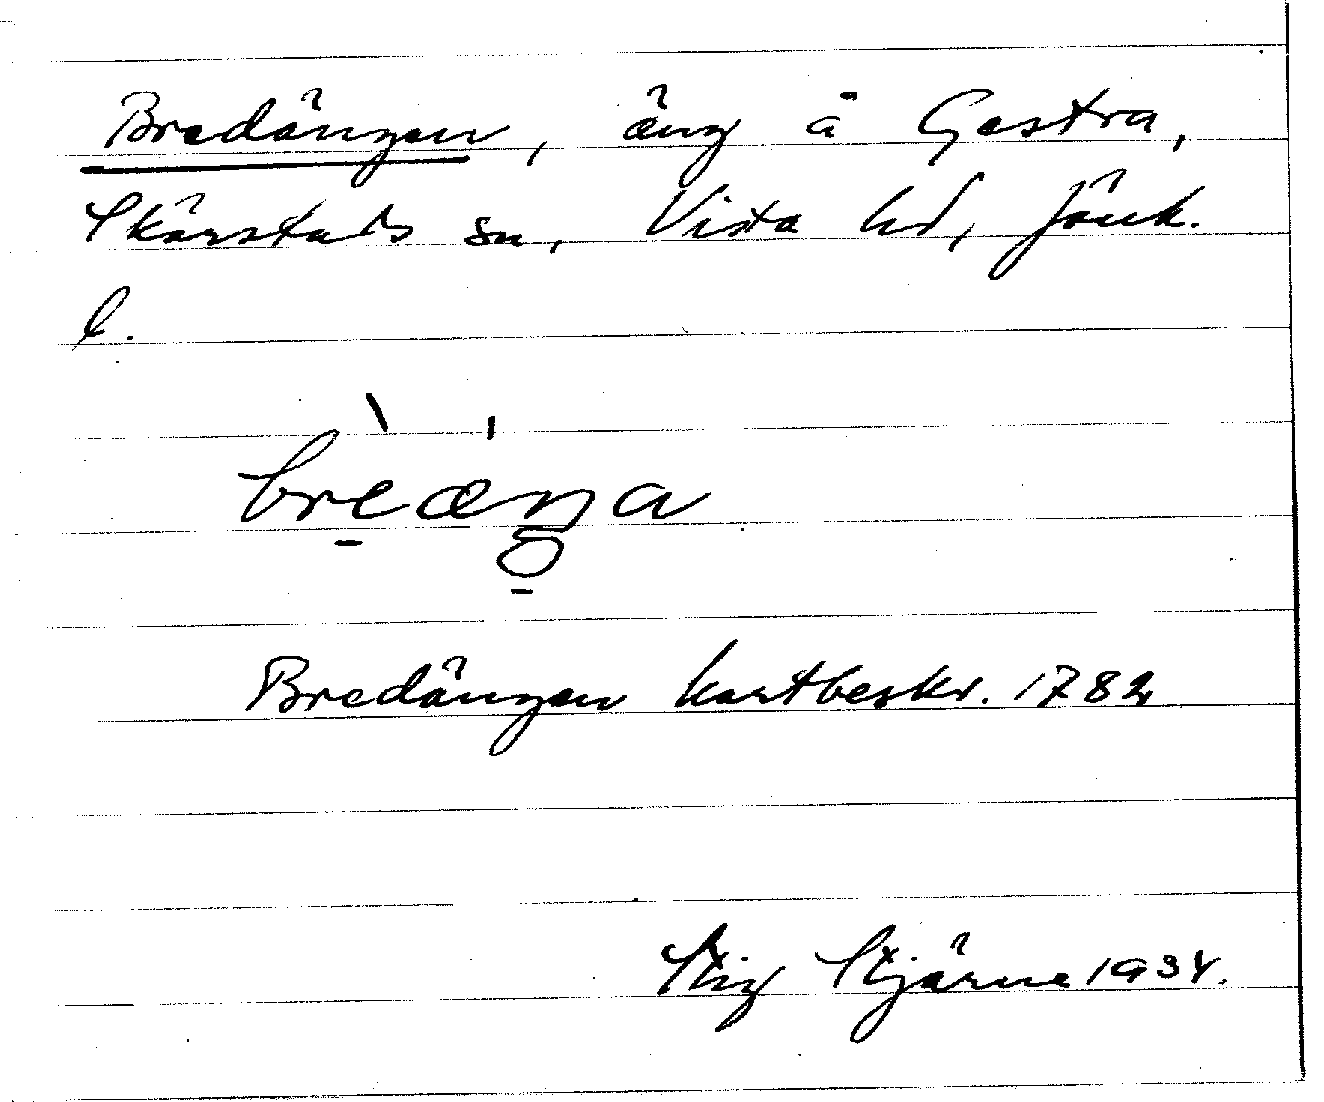 Bredängen, äng å Gestra,
Skärstads sn, Vista hd, Jönk.
l.
brèæ̍ŋa
Bredängen kartbeskr. 1782
Stig Stjärne 1934.